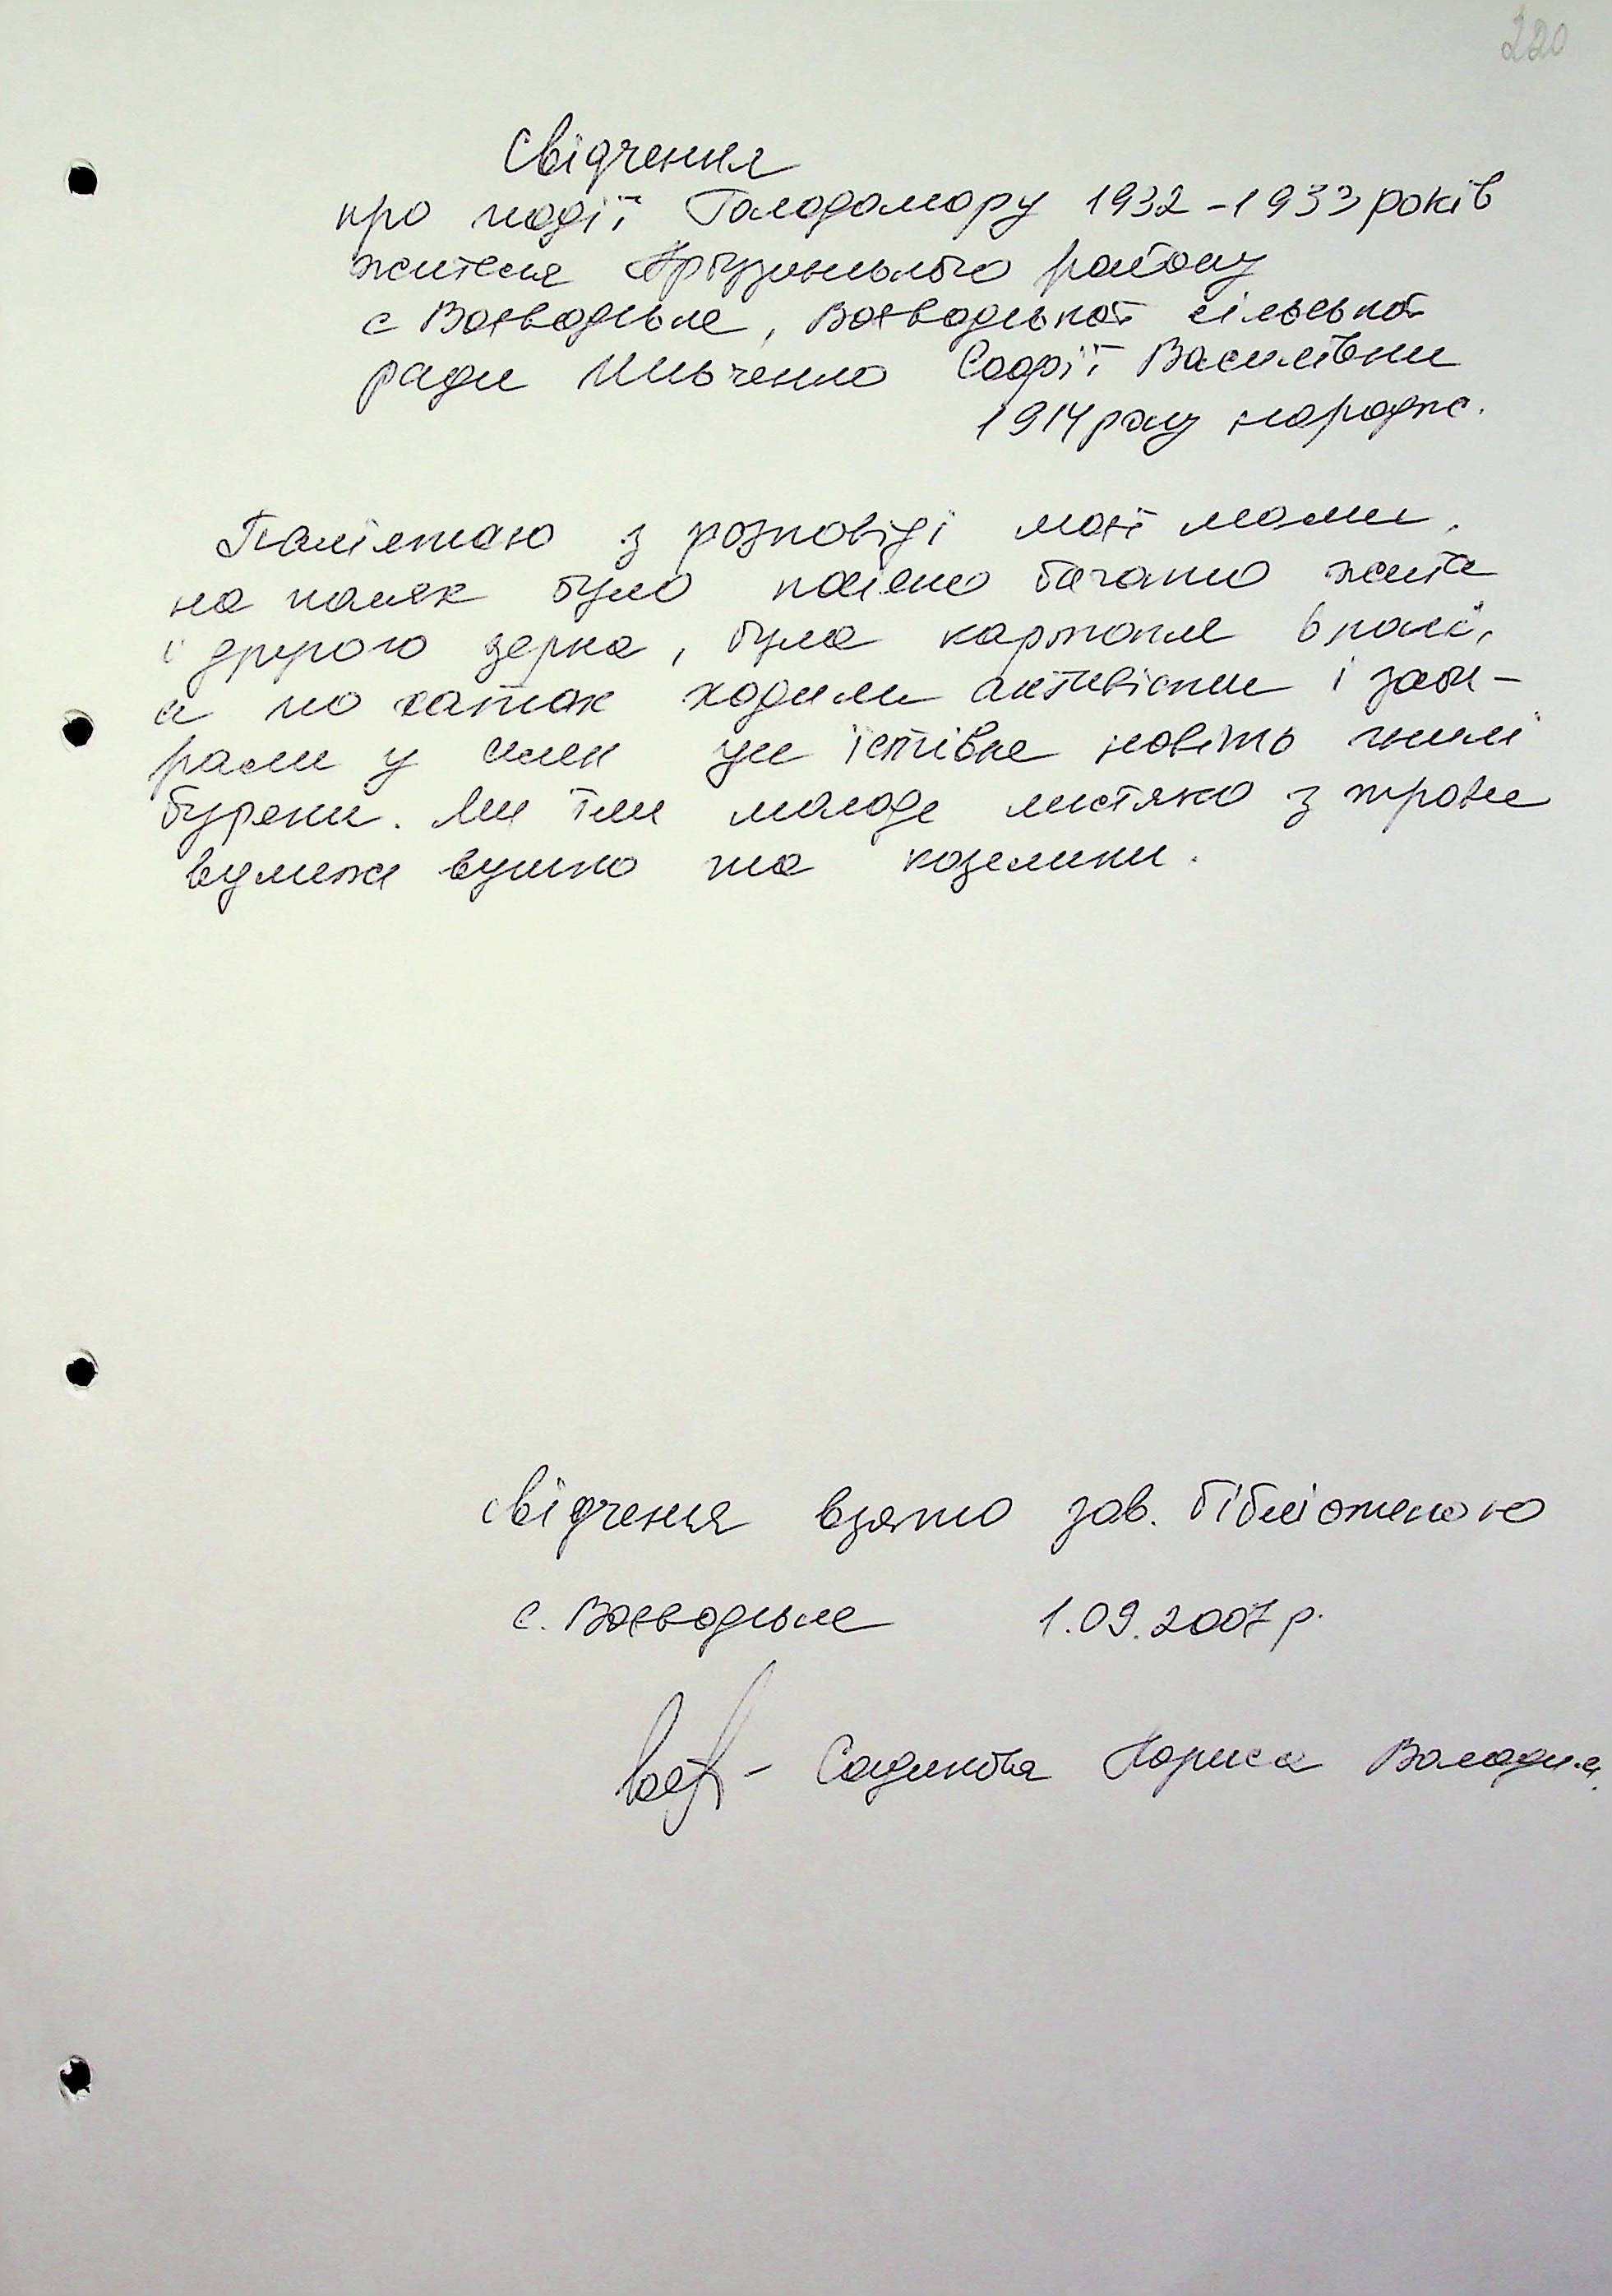 220
Свідчення
про події Голодомору 1932-1933 років
жителя Арбузинського району
с Воєводське, Воєводської сільської
ради Ильченко Софії Василівни
1914 року народж.
Памілятаю з розповіді моєї мами,
на полях було посіяно багато жита
і другого зерна, була картопля в полі,
а по хатах ходили активісти і заби-
рали у сим'ї їстівне навіть гнилі
буряки. Ми їли молоде листяко з трави
вушко та козелики.
свідчення взято зав. бібліотекою
с. Воєводське 1.09.2007 р.
- Садикова Лариса Володим.